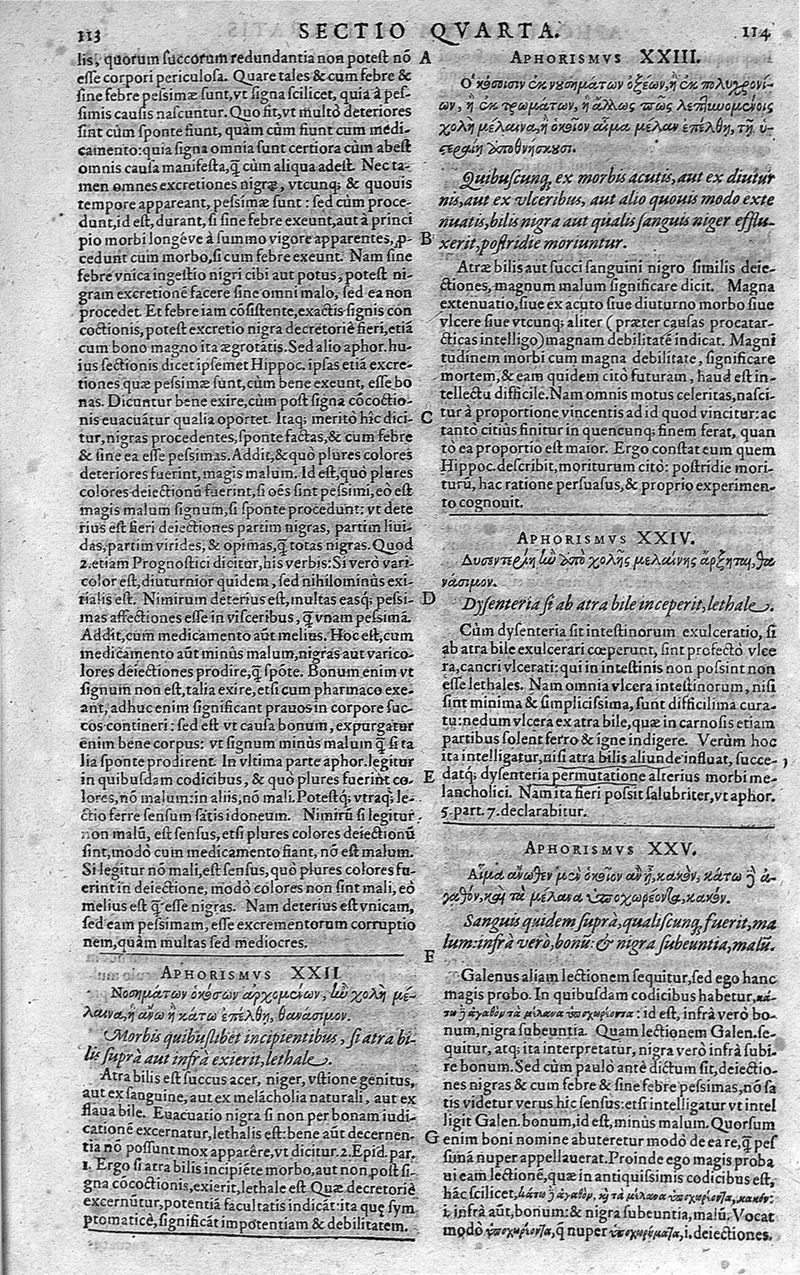 113
SECTIO QVARTA.
114
lis, quorum succorum redundantia non potest nō
esse corpori periculosa. Quare tales & cum febre &
sine febre pessimæ sunt, vt signa scilicet, quia à pes-
simis causis nascuntur. Quo fit, vt multò deteriores
sint cùm sponte fiunt, quàm cùm fiunt cum medi-
camento: quia signa omnia sunt certiora cùm abest
omnis causa manifesta, q̃ cùm aliqua adest. Nec ta-
men omnes excretiones nigræ, vtcunq; & quouis
tempore appareant, pessimæ sunt: sed cùm proce-
dunt, id est, durant, si sine febre exeunt, aut à princi
pio morbi longéve à summo vigore apparentes, ꝓ-
cedunt cum morbo, si cum febre exeunt. Nam sine
febre vnica ingestio nigri cibi aut potus, potest ni-
gram excretionē facere sine omni malo, sed ea non
procedet. Et febre iam cōsistente, exactis signis con
coctionis, potest excretio nigra decretoriè fieri, etiā
cum bono magno ita ægrotātis. Sed alio aphor. hu-
ius sectionis dicet ipsemet Hippoc. ipsas etiā excre-
tiones quæ pessimæ sunt, cùm bene exeunt, esse bo
nas. Dicuntur bene exire, cùm post signa cōcoctio-
nis euacuātur qualia oportet. Itaq; meritò hîc dici-
tur, nigras procedentes, sponte factas, & cum febre
& sine ea esse pessimas. Addit, & quò plures colores
deteriores fuerint, magis malum. Id est, quò plures
colores deiectionū fuerint, si oēs sint pessimi, eo est
magis malum signum, si sponte procedunt: vt dete
rius est fieri deiectiones partim nigras, partim liui-
das, partim virides, & opimas, q̃ totas nigras. Quod
2. etiam Prognostici dicitur, his verbis: Si verò vari-
color est, diuturnior quidem, sed nihilominùs exi-
tialis est. Nimirum deterius est, multas easq; pessi-
mas affectiones esse in visceribus, q̃ vnam pessimā.
Addit, cum medicamento aūt melius. Hoc est, cum
medicamento aūt minùs malum, nigras aut varico-
lores deiectiones prodire, q̃ spōte. Bonum enim vt
signum non est, talia exire, etsi cum pharmaco exe-
ant, adhuc enim significant prauos in corpore suc-
cos contineri: sed est vt causa bonum, expurgatur
enim bene corpus: vt signum minùs malum q̃ si ta
lia sponte prodirent. In vltima parte aphor. legitur
in quibusdam codicibus, & quò plures fuerint co-
lores, nō malum: in aliis, nō mali. Potestq; vtraq; le-
ctio ferre sensum satis idoneum. Nimirū si legitur
non malū, est sensus, etsi plures colores deiectionū
sint, modò cum medicamento fiant, nō est malum.
Si legitur nō mali, est sensus, quò plures colores fu-
erint in deiectione, modò colores non sint mali, eò
melius est q̃ esse nigras. Nam deterius est vnicam,
sed eam pessimam, esse excrementorum corruptio
nem, quàm multas sed mediocres.
APHORISMVS XXII
Νοσημάτων ὁκόσων ἀρχομένων, ἢν χολὴ μέ-
λαινα, ἢ ἄνω ἢ κάτω ἐπέλθῃ, θανάσιμον.
Morbis quibuslibet incipientibus, si atra bi-
lis suprà aut infrà exierit, lethale.
Atra bilis est succus acer, niger, vstione genitus,
aut ex sanguine, aut ex melācholia naturali, aut ex
flaua bile. Euacuatio nigra si non per bonam iudi-
cationē excernatur, lethalis est: bene aūt decernen-
tia nō possunt mox apparêre, vt dicitur. 2. Epid. par.
1. Ergo si atra bilis incipiēte morbo, aut non post si-
gna cōcoctionis, exierit, lethale est Quæ decretoriè
excernūtur, potentiā facultatis indicāt: ita quę sym
ptomaticè, significāt impotentiam & debilitatem.
A
B
C
D
E
F
G
APHORISMVS XXIII.
Ὁκόσοισιν ἐκ νουσημάτων ὀξέων, ἢ ἐκ πολυχρονί-
ων, ἢ ἐκ τρωμάτων, ἢ ἄλλως πως λεπτυνομένοις
χολὴ μέλαινα, ἢ ὁκοῖον αἷμα μέλαν ἐπέλθῃ, τῇ ὑ-
στεραίῃ ἀποθνήσκουσι.
Quibuscunq; ex morbis acutis, aut ex diutur
nis, aut ex vlceribus, aut alio quouis modo exte
nuatis, bilis nigra aut qualis sanguis niger efflu-
xerit, postridie moriuntur.
Atræ bilis aut succi sanguini nigro similis deie-
ctiones, magnum malum significare dicit. Magna
extenuatio, siue ex acuto siue diuturno morbo siue
vlcere siue vtcunq; aliter (præter causas procatar-
cticas intelligo) magnam debilitatē indicat. Magni
tudinem morbi cum magna debilitate, significare
mortem, & eam quidem citò futuram, haud est in-
tellectu difficile. Nam omnis motus celeritas, nasci-
tur à proportione vincentis ad id quod vincitur: ac
tantò citiùs finitur in quencunq; finem ferat, quan
tò ea proportio est maior. Ergo constat eum quem
Hippoc. describit, moriturum citò: postridie mori-
turū, hac ratione persuasus, & proprio experimen-
to cognouit.
APHORISMVS XXIV.
Δυσεντερίη ἢν ἀπὸ χολῆς μελαίνης ἄρξηται, θα
νάσιμον.
Dysenteria si ab atra bile inceperit, lethale.
Cùm dysenteria sit intestinorum exulceratio, si
ab atra bile exulcerari cœperunt, sint profectò vlce
ra, cancri vlcerati: qui in intestinis non possint non
esse lethales. Nam omnia vlcera intestinorum, nisi
sint minima & simplicissima, sunt difficilima cura-
tu: nedum vlcera ex atra bile, quæ in carnosis etiam
partibus solent ferro & igne indigere. Verùm hoc
ita intelligatur, nisi atra bilis aliunde influat, succe-
datq; dysenteria permutatione alterius morbi me-
lancholici. Nam ita fieri possit salubriter, vt aphor.
5. part. 7. declarabitur.
APHORISMVS XXV.
Αἷμα ἄνωθεν μὲν ὁκοῖον ἂν ᾖ, κακόν, κάτω δὲ ἀ-
γαθόν, καὶ τὰ μέλανα ὑποχωρέοντα, κακόν.
Sanguis quidem suprà, qualiscunq; fuerit, ma
lum: infrà verò, bonū: & nigra subeuntia, malū.
Galenus aliam lectionem sequitur, sed ego hanc
magis probo. In quibusdam codicibus habetur, κά-
τω δὲ ἀγαθὸν τὰ μέλανα ὑποχωρέοντα: id est, infrà verò bo-
num, nigra subeuntia. Quam lectionem Galen. se-
quitur, atq; ita interpretatur, nigra verò infrà subi-
re bonum. Sed cùm paulò antè dictum sit, deiectio-
nes nigras & cum febre & sine febre pessimas, nō sa
tis videtur verus hic sensus: etsi intelligatur vt intel
ligit Galen. bonum, id est, minùs malum. Quorsum
enim boni nomine abuteretur modò de ea re, q̃ pes
simā nuper appellauerat. Proinde ego magis proba
ui eam lectionē, quæ in antiquissimis codicibus est,
hāc scilicet, κάτω δὲ ἀγαθὸν, καὶ τὰ μέλανα ὑποχωρέοντα, κακόν:
i. infrà aūt, bonum: & nigra subeuntia, malū. Vocat
modò ὑποχωρέοντα, q̃ nuper ὑποχωρήματα, i. deiectiones.